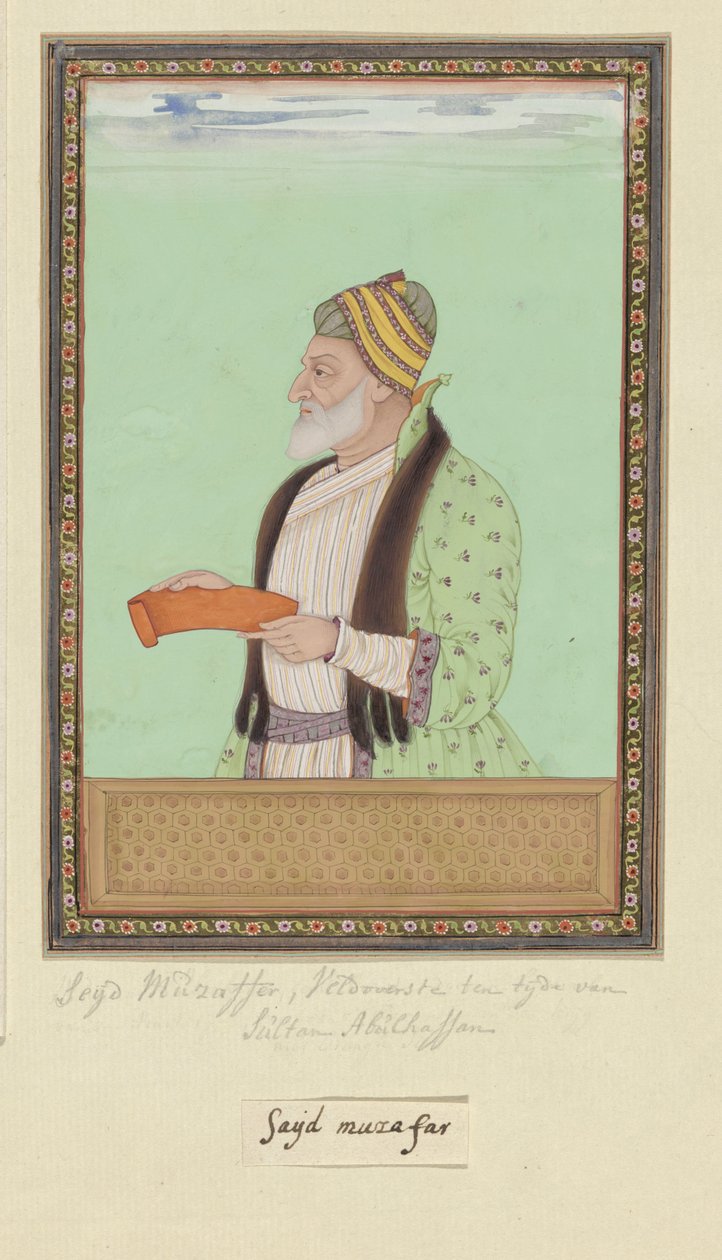 Seyd Muzaffer, Veldoverste ten tyde van
Sultan Abulhassan
Saijd muzafar